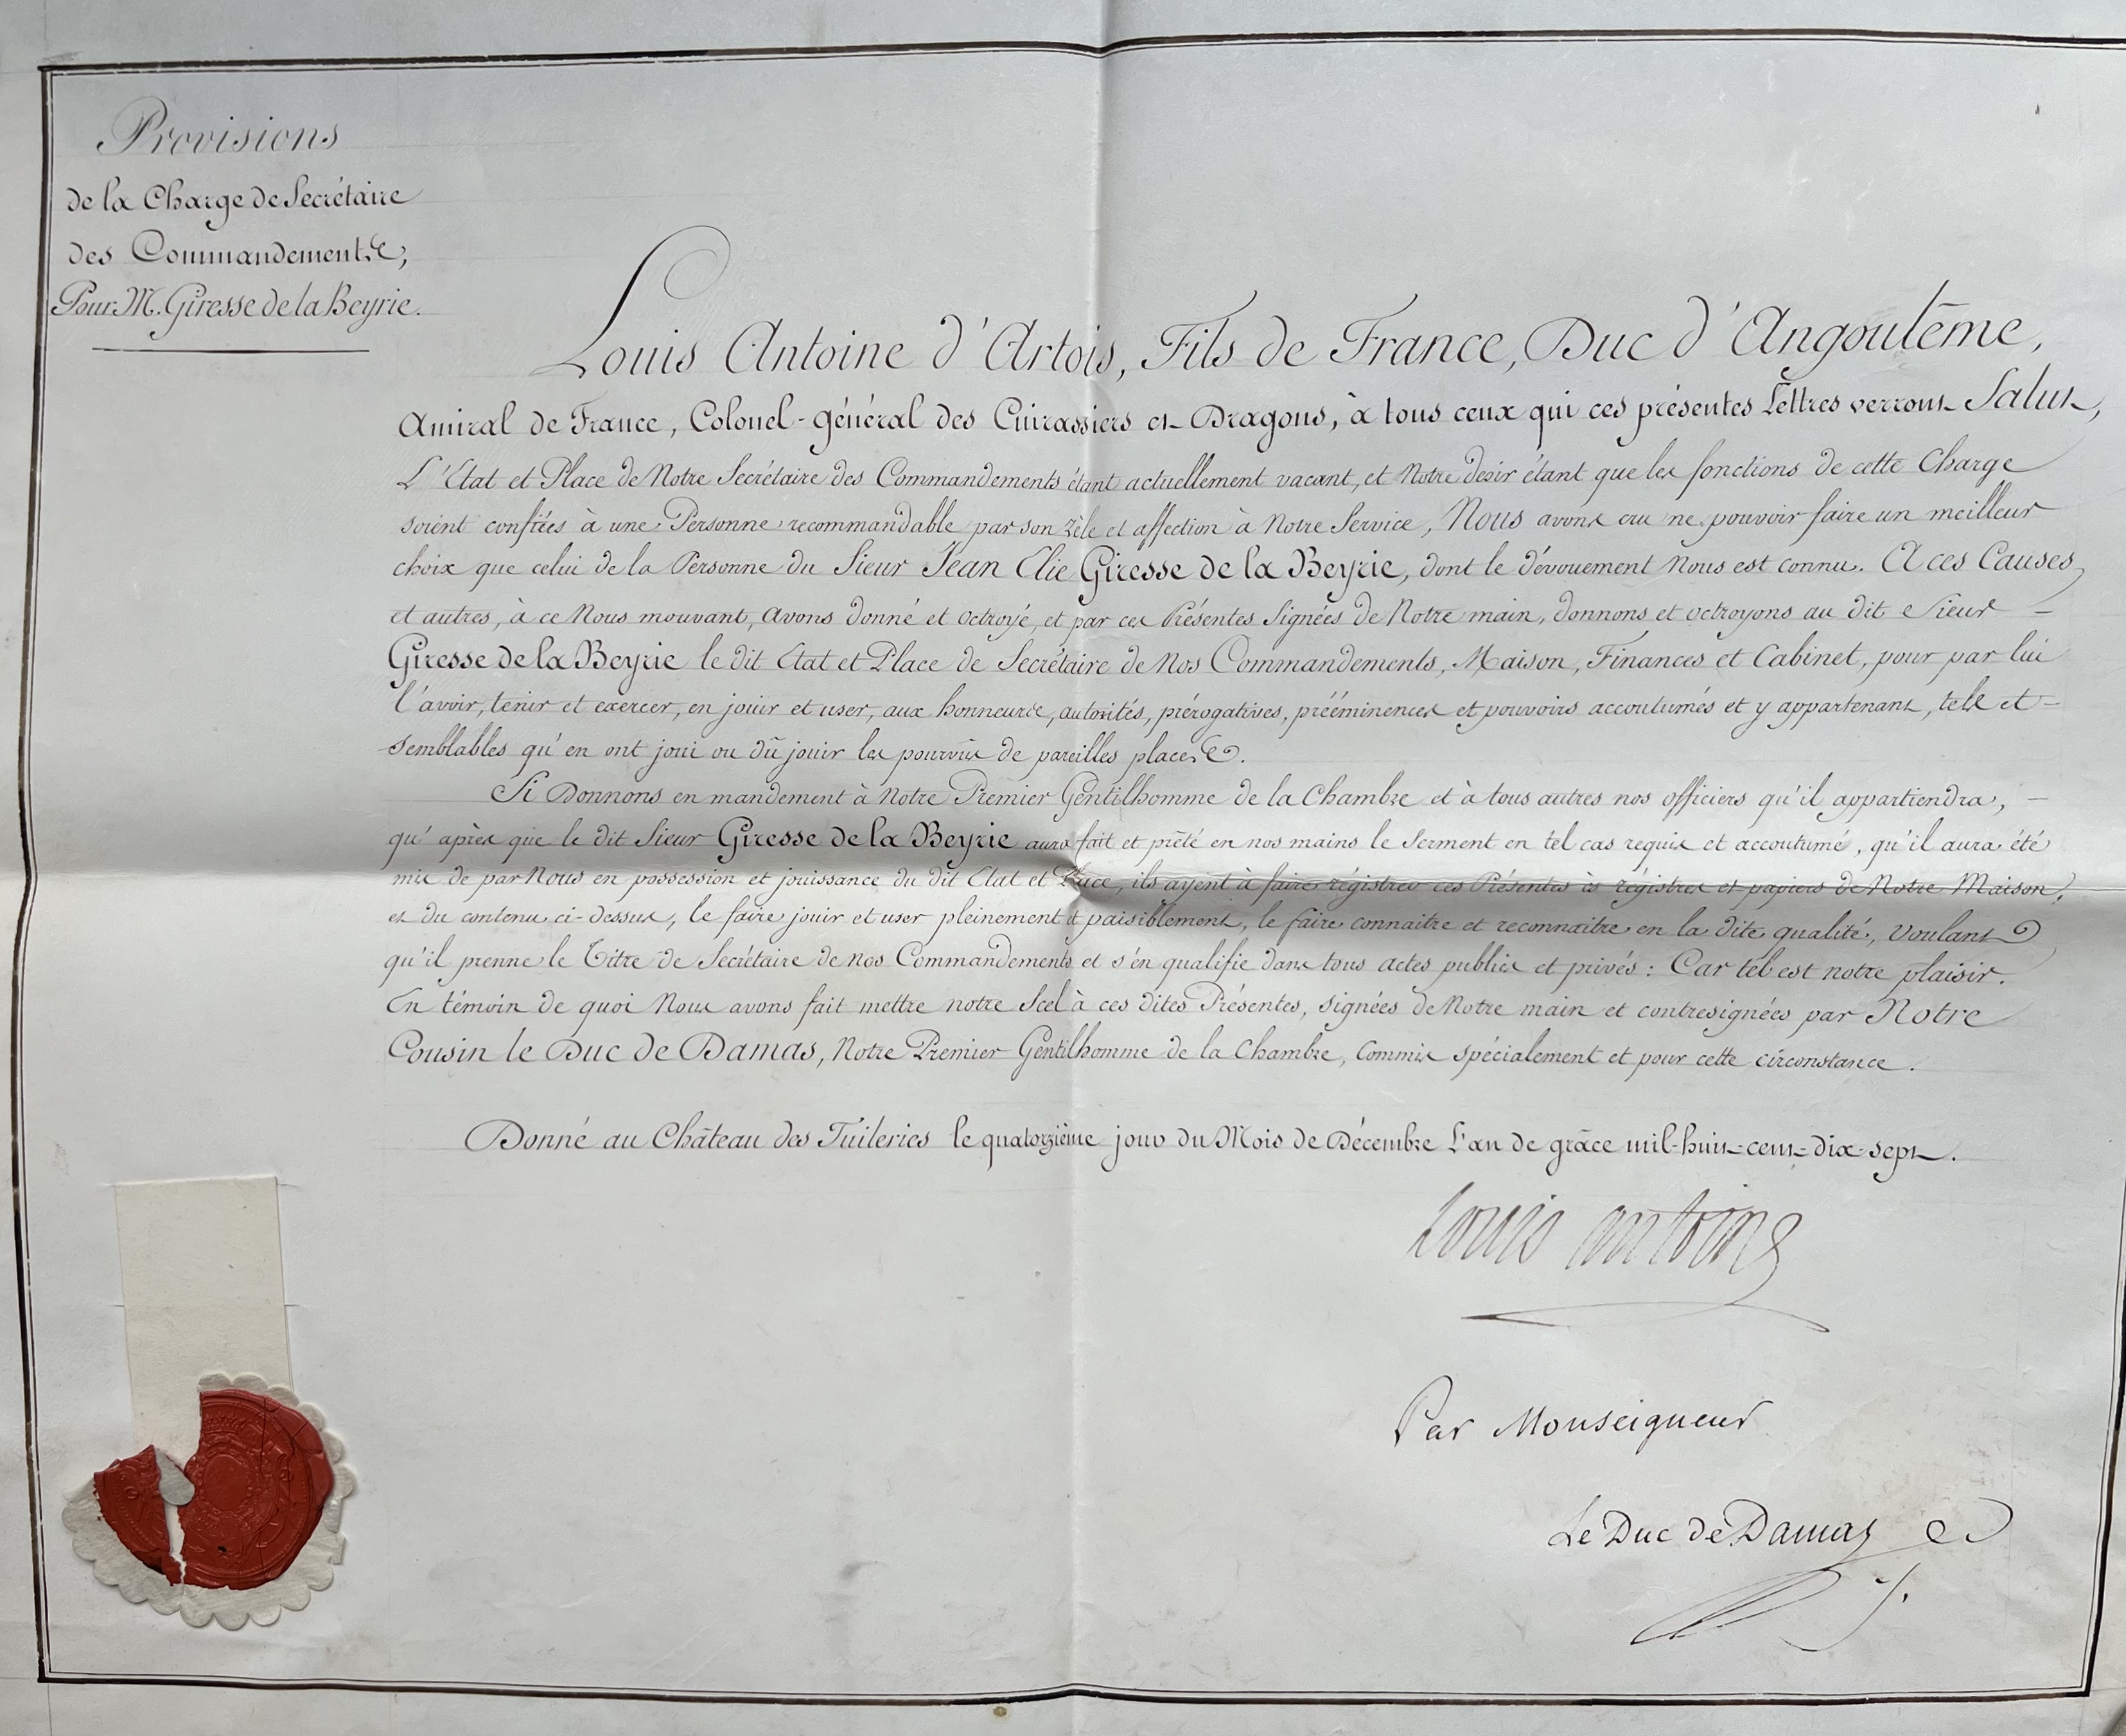 Provisions
de la Charge de Secrétaire
des Commandements,
Pour M. Giresse de la Beyrie.
Louis Antoine d'Artois, Fils de France, Duc d'Angoulême,
Amiral de France, Colonel-général des Cuirassiers et Dragons, à tous ceux qui ces présentes Lettres verront Salut,
L'Etat et Place de Notre Secrétaire des Commandements étant actuellement vacant, et Notre desir étant que les fonctions de cette Charge
soient confiées à une Personne recommandable par son zèle et affection à Notre Service, Nous avons cru ne pouvoir faire un meilleur
choix que celui de la Personne du Sieur Jean Elie Giresse de la Beyrie, dont le dévouement Nous est connu. A ces Causes,
et autres, à ce Nous mouvant, avons donné et octroyé, et par ces Présentes Signées de Notre main, donnons et octroyons au dit Sieur -
Giresse de la Beyrie le dit Etat et Place de Secrétaire de Nos Commandements, Maison, Finances et Cabinet, pour par lui
l'avoir, tenir et exercer, en jouir et user, aux honneurs, autorités, prérogatives, prééminences et pouvoirs accoutumés et y appartenant, tels et -
semblables qu'en ont joui ou dû jouir les pourvus de pareilles places.
Si Donnons en mandement à Notre Premier Gentilhomme de la Chambre et à tous autres nos officiers qu'il appartiendra, -
qu'après que le dit Sieur Giresse de la Beyrie aura fait et prêté en nos mains le Serment en tel cas requis et accoutumé, qu'il aura été
mis de par Nous en possession et jouissance du dit Etat et Place, ils ayent à faire régistrer ces Présentes ès régistres et papiers de Notre Maison,
et du contenu ci-dessus, le faire jouir et user pleinement et paisiblement, le faire connaitre et reconnaitre en la dite qualité, voulant
qu'il prenne le Titre de Secrétaire de nos Commandements et s'en qualifie dans tous actes publics et privés : Car tel est notre plaisir.
En témoin de quoi Nous avons fait mettre notre Scel à ces dites Présentes, signées de Notre main et contresignées par Notre
Cousin le Duc de Damas, Notre Premier Gentilhomme de la Chambre, Commis spécialement et pour cette circonstance.
Donné au Château des Tuileries le quatorzième jour du Mois de Décembre L'an de grâce mil-huit-cent-dix-sept.
Louis Antoine
Par Monseigneur
Le Duc de Damas